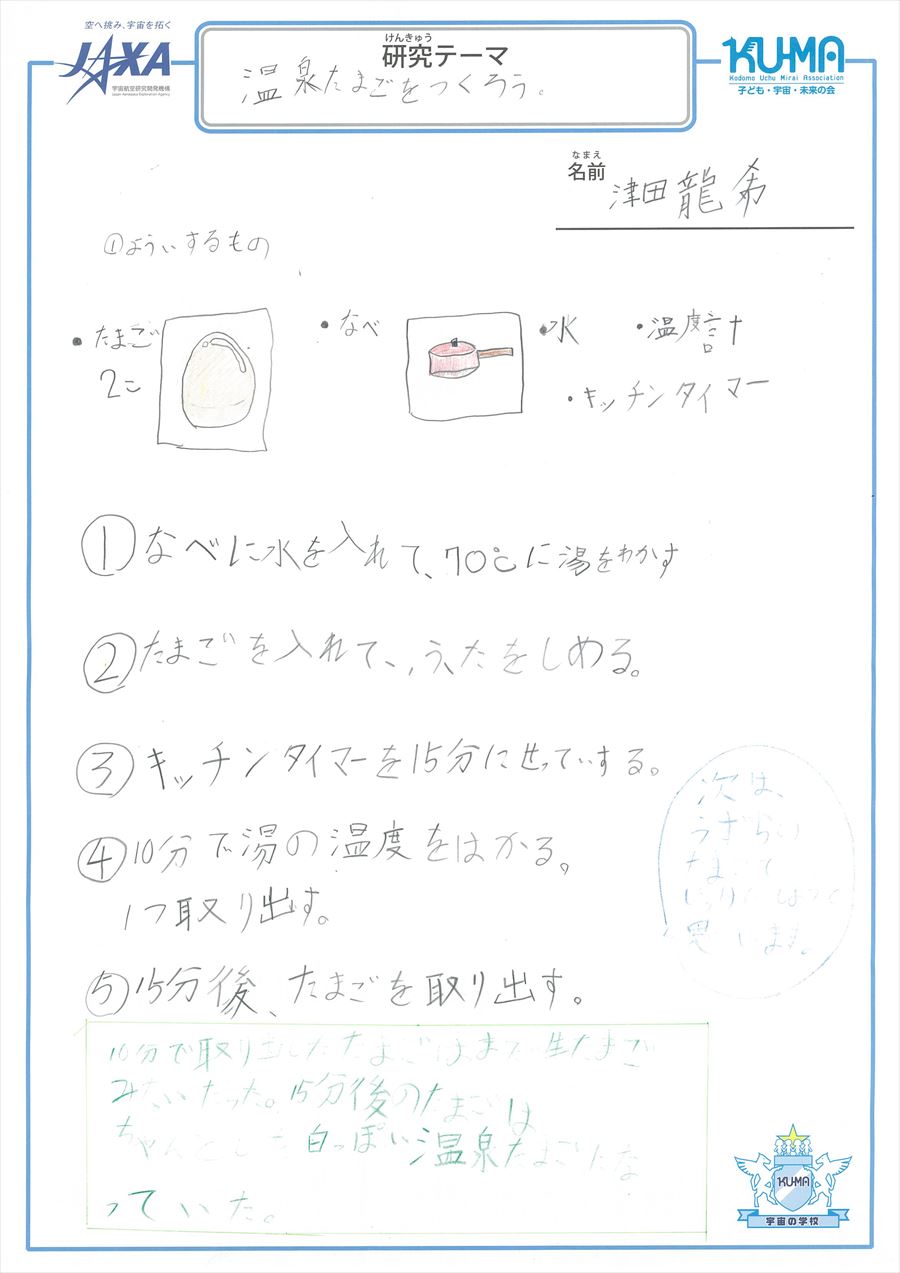 空へ挑み、宇宙を拓く
JAXA
宇宙航空研究開発機構
Japan Aerospace Exploration Agency
けんきゅう
研究テーマ
温泉たまごをつくろう。
KU-MA
Kodomo Uchu Mirai Association
子ども・宇宙・未来の会
なまえ
名前
津田龍希
①よういするもの
・たまご
2こ
・なべ
・水
・温度計
・キッチンタイマー
①なべに水を入れて、70℃に湯をわかす
②たまごを入れて、ふたをしめる。
③キッチンタイマーを15分にせっていする。
④10分で湯の温度をはかる。
1つ取り出す。
⑤15分後、たまごを取り出す。
次は、
うずらの
たまご
思います。
10分で取り出したたまごはまだ生たまご
みたいだった。15分後のたまごは
ちゃんとした白っぽい温泉たまごにな
っていた。
KU-MA
宇宙の学校